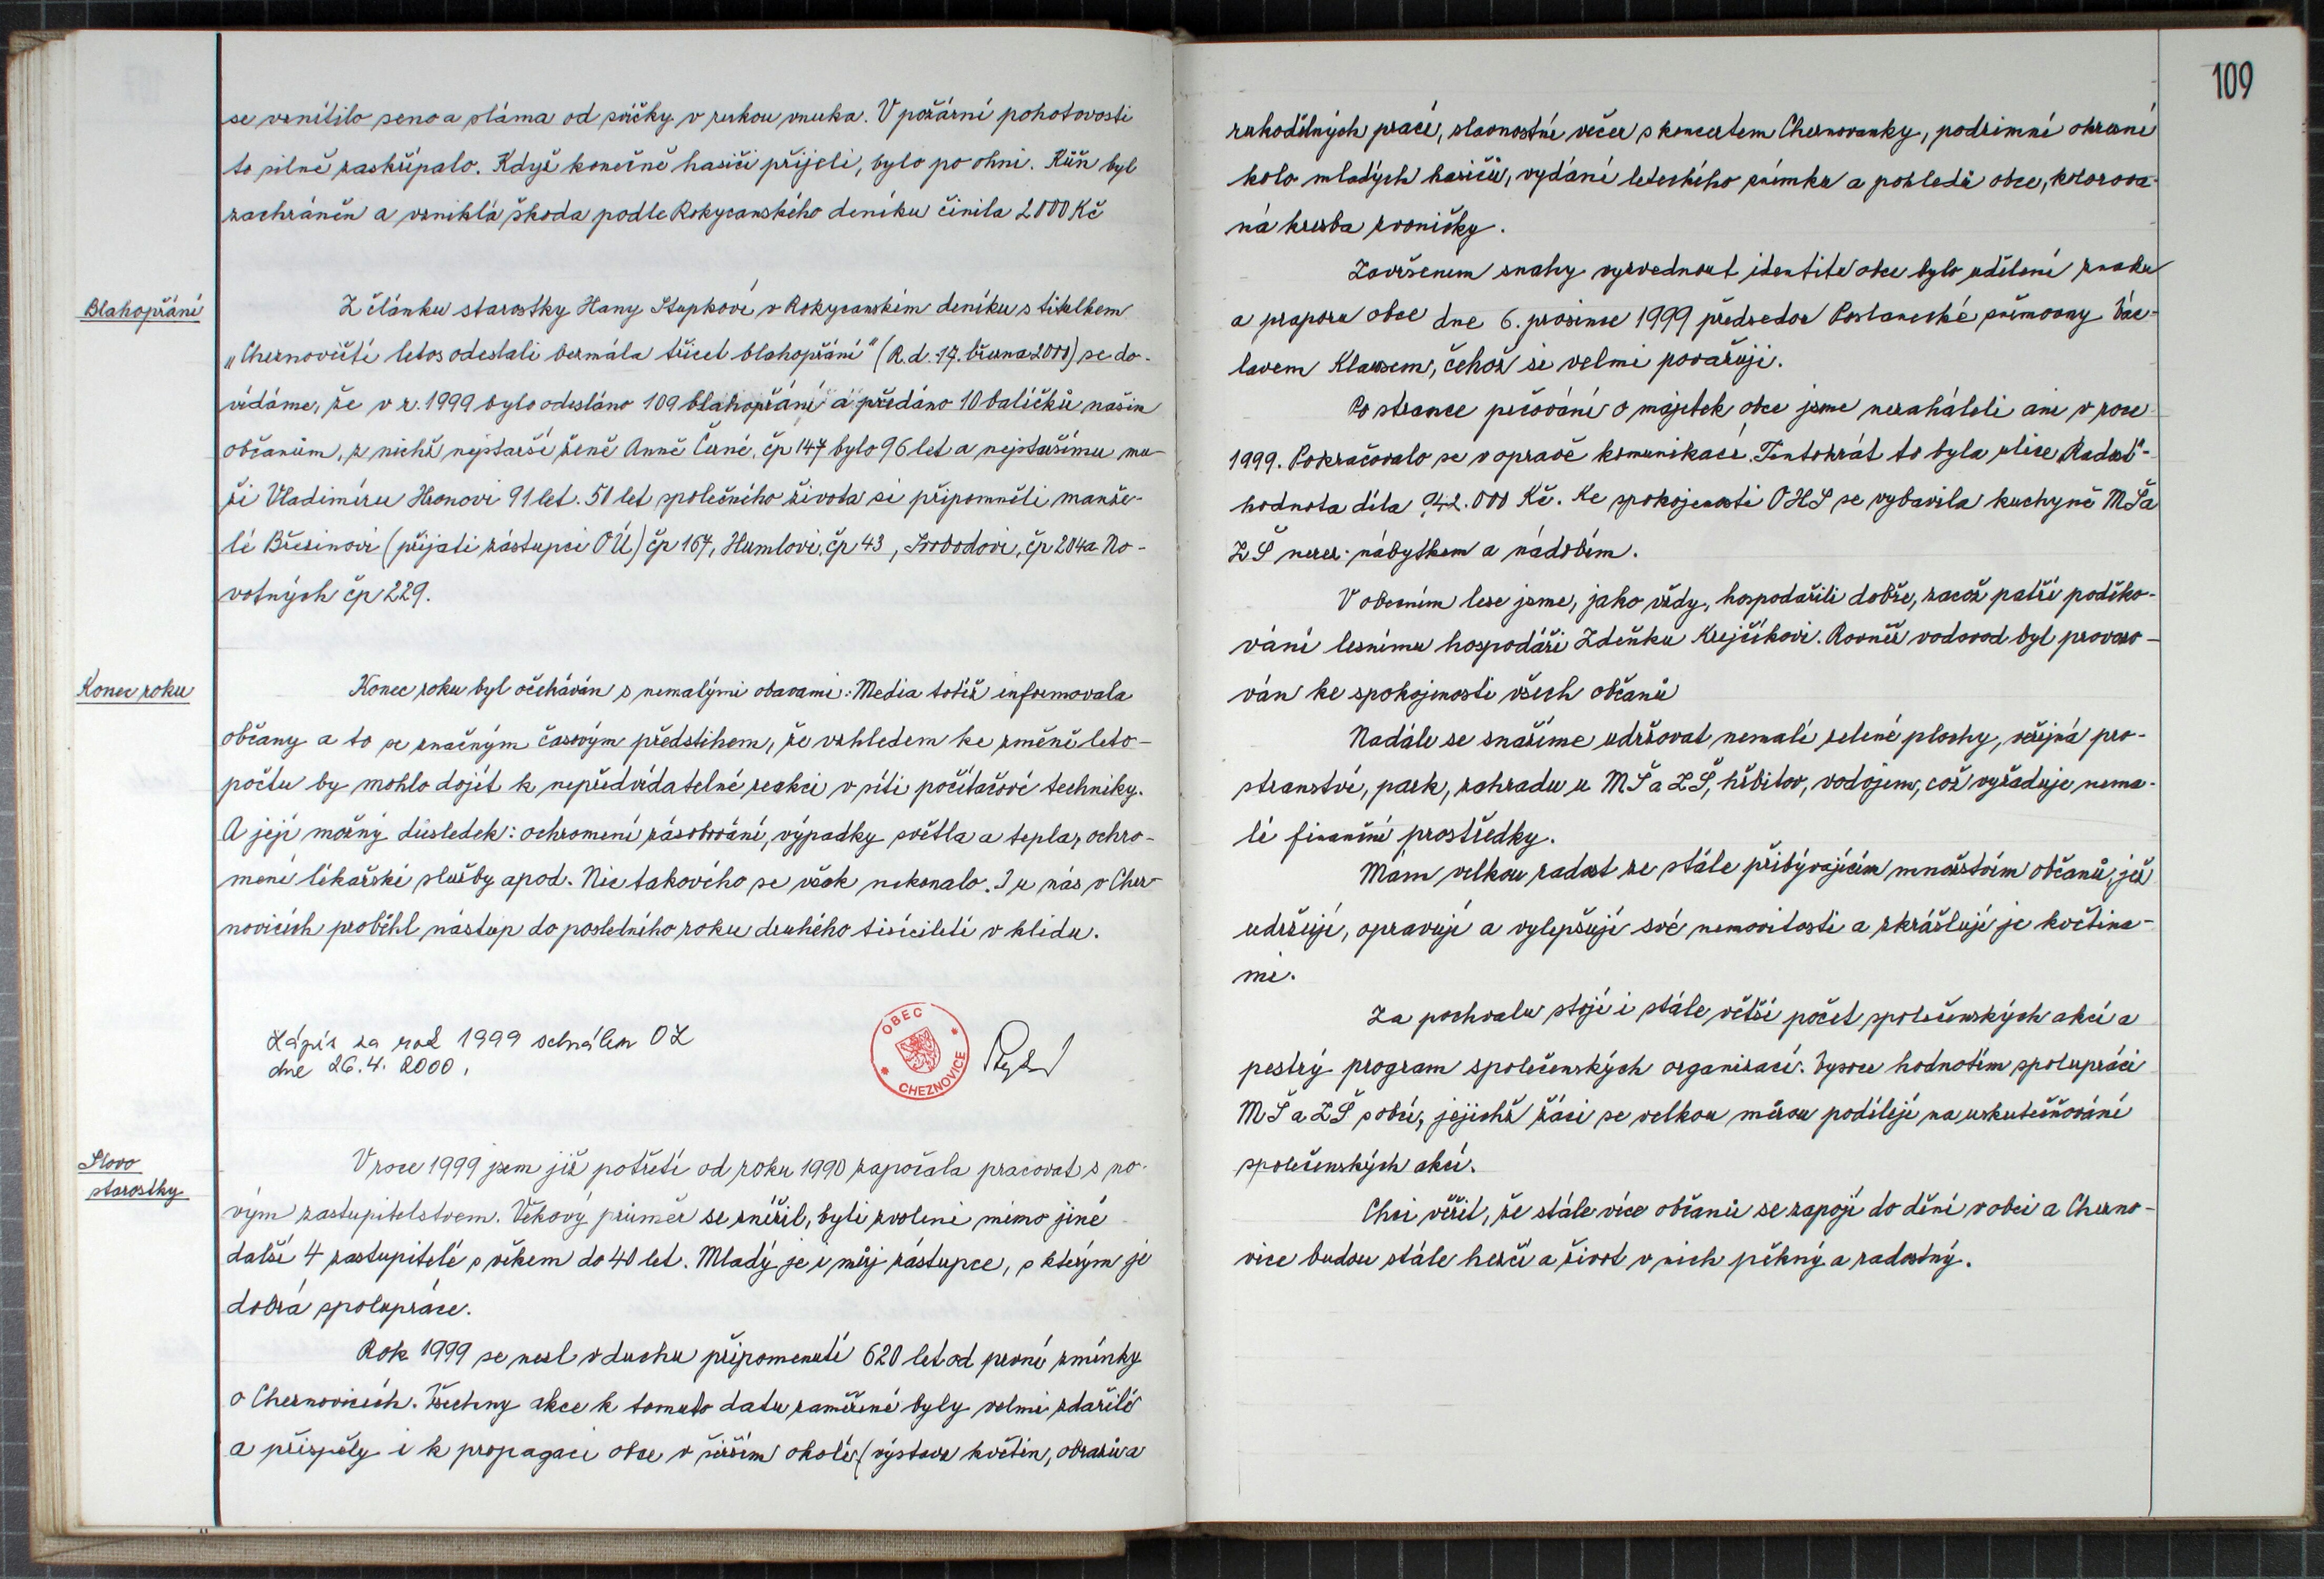 109
se vznítilo seno a sláma od svíčky v rukou vnuka. V požární pohotovosti
to silně zaskřípalo. Když konečně hasiči přijeli, bylo po ohni. Kůň byl
zachráněn a vzniklá škoda podle Rokycanského deníku činila 2000 Kč
Blahopřání
Z článku starostky Hany Stupkové v Rokycanském deníku s titulkem
„Cheznovičtí letos odeslali bezmála třicet blahopřání" (R.d. 17. března 2000) se do-
vídáme, že v r. 1999 bylo odesláno 109 blahopřání a předáno 10 balíčků našim
občanům, z nichž nejstarší ženě Anně Černé, čp 147 bylo 96 let a nejstaršímu mu-
ži Vladimíru Hronovi 91 let. 50 let společného života si připomněli manže-
lé Březinovi (přijati zástupci OÚ) čp 167, Humlovi, čp 43, Svobodovi, čp 204 a No-
votných čp 229.
Konec roku
Konec roku byl očekáván s nemalými obavami: Media totiž informovala
občany a to se značným časovým předstihem, že vzhledem ke změně leto-
počtu by mohlo dojít k nepředvídatelné reakci v síti počítačové techniky.
A její možný důsledek: ochromení zásobování, výpadky světla a tepla, ochro-
mení lékařské služby apod. Nic takového se však nekonalo. I u nás v Chez-
novicích proběhl nástup do posledního roku druhého tisíciletí v klidu.
Zápis za rok 1999 schválen OZ
dne 26.4. 2000.
OBEC
CHEZNOVICE
Slovo
starostky
V roce 1999 jsem již potřetí od roku 1990 započala pracovat s no-
vým zastupitelstvem. Věkový průměr se snížil, byli zvoleni mimo jiné
další 4 zastupitelé s věkem do 40 let. Mladý je i můj zástupce, s kterým je
dobrá spolupráce.
Rok 1999 se nesl v duchu připomenutí 620 let od první zmínky
o Cheznovicích. Všechny akce k tomuto datu zaměřené byly velmi zdařilé
a přispěly i k propagaci obce v širším okolí (výstava květin, obrazů a
rukodělných prací, slavnostní večer s koncertem Cheznovanky, podzimní okresní
kolo mladých hasičů, vydání leteckého snímku a pohledů obce, kolorova-
ná kresba zvoničky.
Završením snahy vyzvednout identitu obce bylo udělení znaku
a praporu obce dne 6. prosince 1999 předsedou Poslanecké sněmovny Vác-
lavem Klausem, čehož si velmi považuji.
Po stránce pečování o majetek obce jsme nezaháleli ani v roce
1999. Pokračovalo se v opravě komunikací. Tentokrát to byla ulice „Radost" -
hodnota díla 942.000 Kč. Ke spokojenosti OHS se vybavila kuchyně MŠ a
ZŠ nerez. nábytkem a nádobím.
V obecním lese jsme, jako vždy, hospodařili dobře, za což patří poděko-
vání lesnímu hospodáři Zdeňku Krejčíkovi. Rovněž vodovod byl provozo-
ván ke spokojenosti všech občanů
Nadále se snažíme udržovat nemalé zelené plochy, veřejná pro-
stranství, park, zahradu u MŠ a ZŠ, hřbitov, vodojem, což vyžaduje nema-
lé finanční prostředky.
Mám velkou radost ze stále přibývajícím množstvím občanů, již
udržují, opravují a vylepšují své nemovitosti a zkrášlují je květina-
mi.
Za pochvalu stojí i stále větší počet společenských akcí a
pestrý program společenských organizací. Vysoce hodnotím spolupráci
MŠ a ZŠ s obcí, jejichž žáci se velkou měrou podílejí na uskutečňování
společenských akcí.
Chci věřit, že stále více občanů se zapojí do dění v obci a Chezno-
vice budou stále hezčí a život v nich pěkný a radostný.